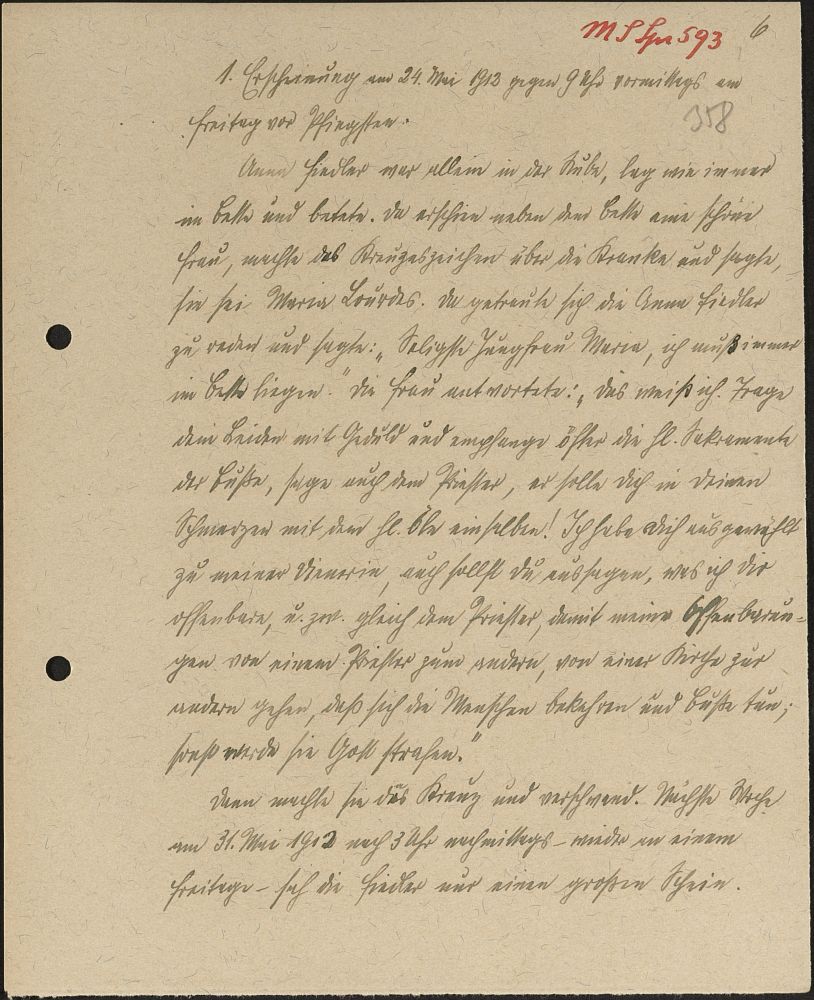 MS Spr 593 6
1. Erscheinung am 24. Mai 1912 gegen 9 Uhr vormittags am
358
Freitag vor Pfingsten.
Anna Fiedler war allein in der Stube, lag wie immer
im Bette und betete. Da erschien neben dem Bette eine schöne
Frau, machte das Kreuzeszeichen über die Kranke und sagte,
sie sei Maria Lourdes. Da getraute sich die Anna Fiedler
zu reden und sagte: „Seligste Jungfrau Maria, ich muß immer
im Bette liegen." Die Frau antwortete: „Das weiß ich. Trage
dein Leiden mit Geduld und empfange öfter die hl. Sakramente
der Buße, sage auch dem Priester, er solle dich in deinen
Schmerzen mit dem hl. Öle einsalben! Ich habe dich ausgewählt
zu meiner Dienerin, auch sollst du aussagen, was ich dir
offenbare, u. zw. gleich dem Priester, damit meine Offenbarun-
gen von einem Priester zum andern, von einer Kirche zur
andern gehen, daß sich die Menschen bekehren und Buße tun;
sonst werde sie Gott strafen."
Dann machte sie das Kreuz und verschwand. Nächste Woche
am 31. Mai 1912 nach 3 Uhr nachmittags – wieder an einem
Freitage – sah die Fiedler nur einen großen Schein.